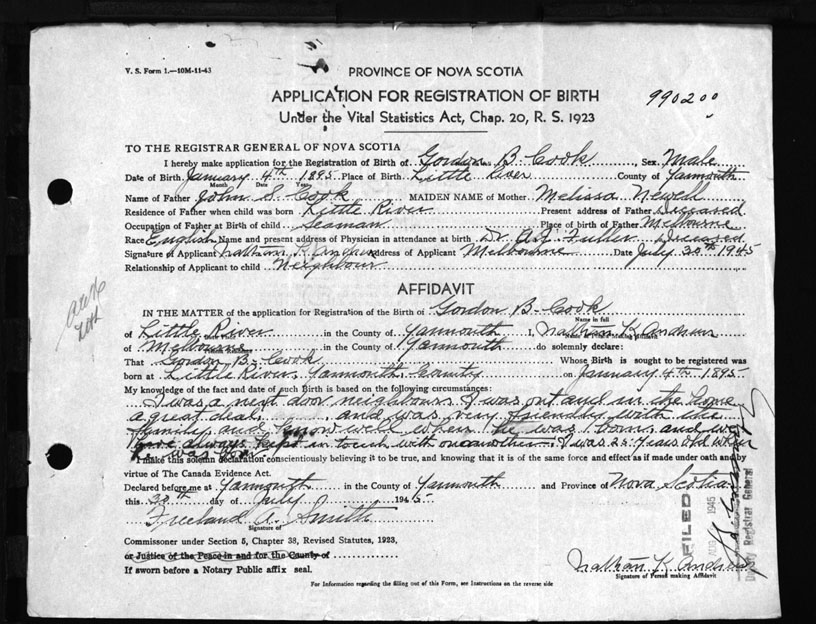 V. S. Form 1.—10M-11-43
PROVINCE OF NOVA SCOTIA
APPLICATION FOR REGISTRATION OF BIRTH
990200
Under the Vital Statistics Act, Chap. 20, R. S. 1923
TO THE REGISTRAR GENERAL OF NOVA SCOTIA
I hereby make application for the Registration of Birth of Gordon B Cook, Sex Male
Date of Birth January 4th 1895 Place of Birth Little River County of Yarmouth
Month Date Year
Name of Father John S. Cook MAIDEN NAME of Mother Melissa Newell
Residence of Father when child was born Little River Present address of Father Deceased
Occupation of Father at Birth of child Seaman Place of birth of Father Melbourne
Race English Name and present address of Physician in attendance at birth Dr. A. J. Fuller Deceased
Signature of Applicant Nathan K. Andrews Address of Applicant Melbourne Date July 30th 1945
Relationship of Applicant to child Neighbour
AFFIDAVIT
IN THE MATTER of the application for Registration of the Birth of Gordon B- Cook
Name in full
of Little River in the County of Yarmouth I, Nathan K Andrews
Name of Person Making Affidavit
of Melbourne in the County of Yarmouth do solemnly declare:
That Gordon B- Cook Whose Birth is sought to be registered was
born at Little River, Yarmouth, County on January 4th 1895-
My knowledge of the fact and date of such Birth is based on the following circumstances:
I was a next door neighbour. I was out and in the home
a great deal. and was very friendly with the
family and know well when he was born, and we
have always kept in touch with one another. I was 25 years old when
he was born.
I make this solemn declaration conscientiously believing it to be true, and knowing that it is of the same force and effect as if made under oath and by
virtue of The Canada Evidence Act.
Declared before me at Yarmouth in the County of Yarmouth and Province of Nova Scotia
this 30th day of July 1945-
Freeland A. Smith
Signature of
Commissoner under Section 5, Chapter 38, Revised Statutes, 1923,
or Justice of the Peace in and for the County of
If sworn before a Notary Public affix seal.
Nathan K Andrews
Signature of Person making Affidavit
For Information regarding the filling out of this Form, see Instructions on the reverse side
FILED
AUG 1945
Deputy Registrar General